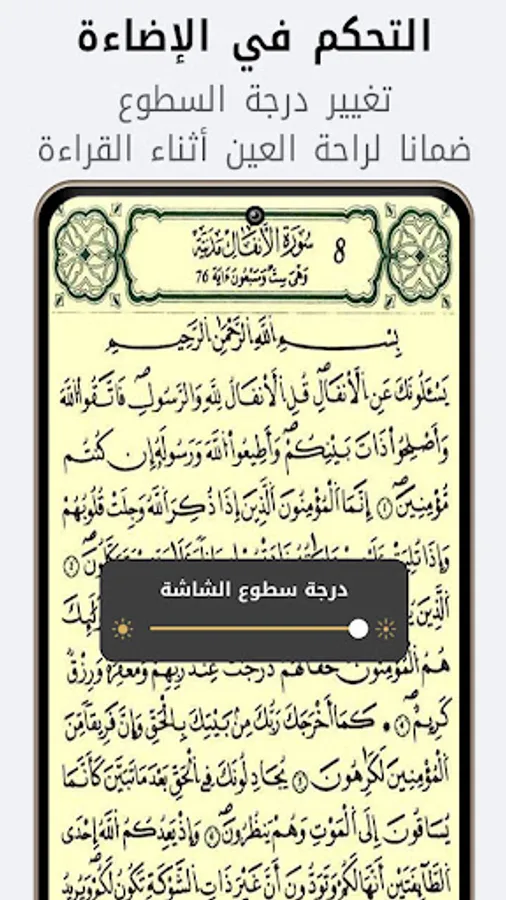 التحكم في الإضاءة
تغيير درجة السطوع
ضمانا لراحة العين أثناء القراءة
سُورَةُ الْأَنفَالِ مَدَنِيَّة 8
وَهْيَ سِتٌّ وَسَبْعُونَ ءَايَة 76
بِسْمِ اللَّهِ الرَّحْمَٰنِ الرَّحِيمِ
يَسْـَٔلُونَكَ عَنِ الْأَنفَالِ قُلِ الْأَنفَالُ لِلَّهِ وَالرَّسُولِ فَاتَّقُوا اللَّهَ
وَأَصْلِحُوا ذَاتَ بَيْنِكُمْ وَأَطِيعُوا اللَّهَ وَرَسُولَهُ إِن كُنتُم
مُّؤْمِنِينَ ١ إِنَّمَا الْمُؤْمِنُونَ الَّذِينَ إِذَا ذُكِرَ اللَّهُ وَجِلَتْ قُلُوبُهُمْ
وَإِذَا تُلِيَتْ
درجة سطوع الشاشة
الَّذِينَ
هُمُ الْمُؤْمِنُونَ حَقًّا لَّهُمْ دَرَجَٰتٌ عِندَ رَبِّهِمْ وَمَغْفِرَةٌ وَرِزْقٌ
كَرِيمٌ ٤ كَمَا أَخْرَجَكَ رَبُّكَ مِن بَيْتِكَ بِالْحَقِّ وَإِنَّ فَرِيقًا مِّنَ
الْمُؤْمِنِينَ لَكَٰرِهُونَ ٥ يُجَٰدِلُونَكَ فِي الْحَقِّ بَعْدَ مَا تَبَيَّنَ كَأَنَّمَا
يُسَاقُونَ إِلَى الْمَوْتِ وَهُمْ يَنظُرُونَ ٦ وَإِذْ يَعِدُكُمُ اللَّهُ إِحْدَى
الطَّآئِفَتَيْنِ أَنَّهَا لَكُمْ وَتَوَدُّونَ أَنَّ غَيْرَ ذَاتِ الشَّوْكَةِ تَكُونُ لَكُمْ وَيُرِيدُ